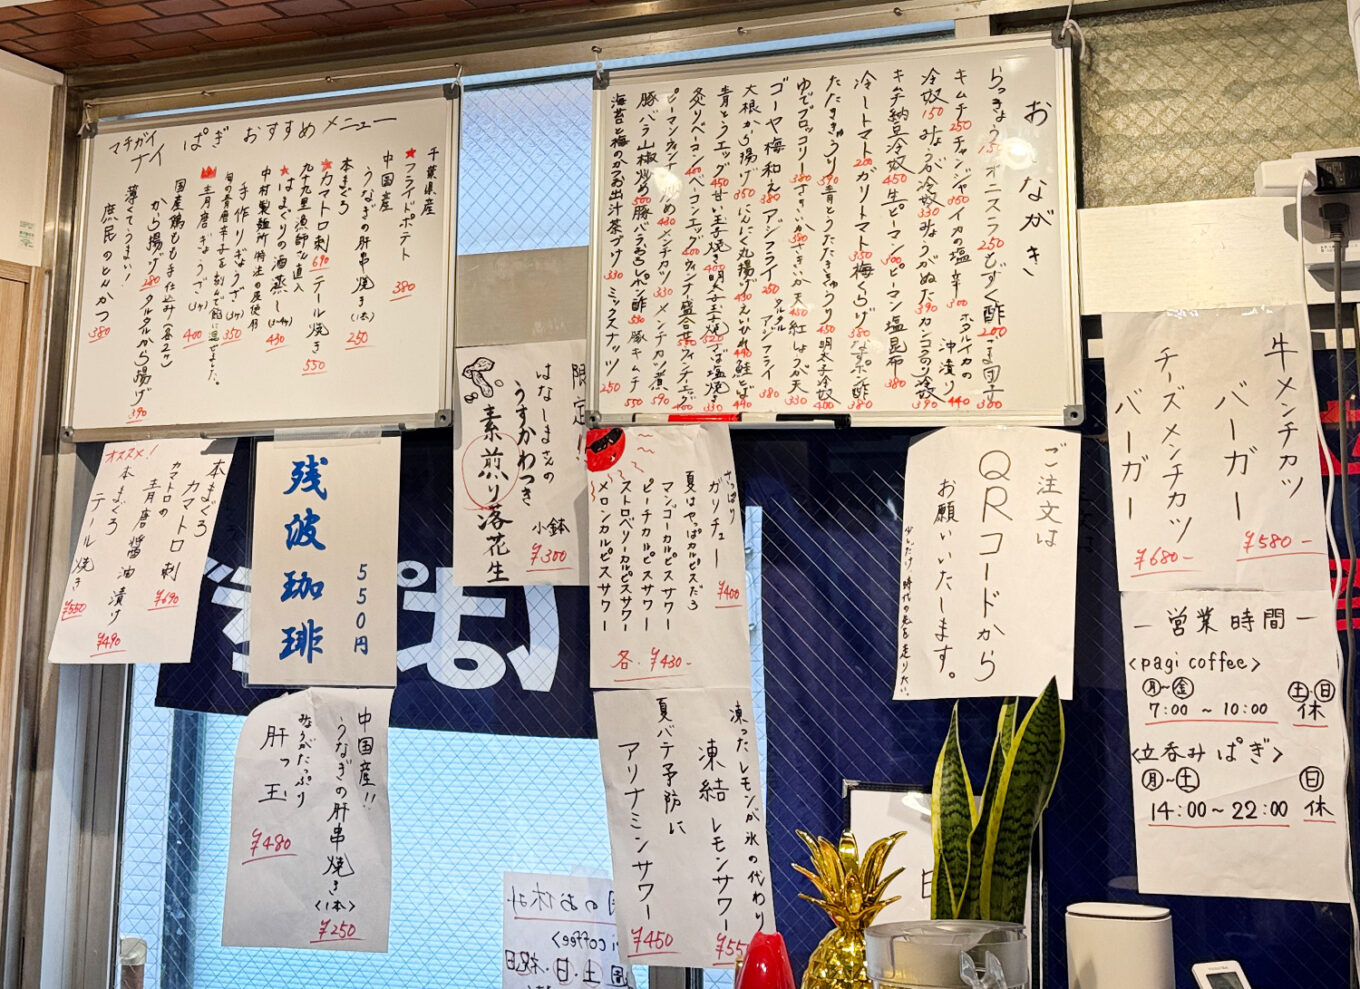 マチガイ
ナイ ぱぎ おすすめメニュー
千葉県産
★フライドポテト 380
中国産
うなぎの肝串焼き(1本) 250
本まぐろ
★カマトロ刺 690 テール焼き 550
九十九里漁師さん直入
★はまぐりの酒蒸し 430
中村製麺所 特注の皮使用
手作りぎょうざ 350
青唐ぎょうざ 400
国産鶏もも手仕込み(各2ケ)
から揚げ 280 タルタルから揚げ 390
薄くてうまい!
庶民のとんかつ 380
おながき
らっきょう 150 オニスラ 250 もずく酢 200 ごま団子 300
キムチ 250 チャンジャ 350 イカの塩辛 300 ホタルイカの沖漬り 440
冷奴 150 みょうが冷奴 330 みょうがぬた 390 カンコクのり冷奴 390
キムチ納豆冷奴 450 生ピーマン ピーマン塩昆布 380
冷しトマト 200 ガリトマト 350 梅くらげ 380 なすポン酢 380
たたききゅうり 390 青とうたたききゅうり 450 明太子冷奴 400
ゆでブロッコリー 380 さきいか 380 さきいか天 450 紅しょうが天 330
ゴーヤ梅和え 380 アジフライ 250 タルタルアジフライ 380
大根から揚げ 350 にんにく丸揚げ 430 えいひれ 490 鮭とば 490
青とうエッグ 450 甘い玉子焼き 400 明太玉子焼き 520 さば塩焼き 330
炙りベーコン 400 ベーコンエッグ 400 ウィンナー盛合せ ウィンナーエッグ 400
ピーマンウィンナー炒め 430 メンチカツ 330 メンチカツ煮 590
豚バラ山椒炒め 500 豚バラおろしポン酢 550 豚キムチ 550
海苔と梅のかつお出汁茶づけ 330 ミックスナッツ 250
オススメ!
本まぐろ
カマトロ刺 ¥690
カマトロの
青唐醤油漬け ¥490
本まぐろ
テール焼き ¥550
残波珈琲
550円
限定!!
はなしまさんの
うすかわつき
素煎り落花生
小鉢 ¥300
さっぱり
ガリチュー ¥400
夏はやっぱカルピスだろ
マンゴーカルピスサワー
ピーチカルピスサワー
ストロベリーカルピスサワー
メロンカルピスサワー
各 ¥430-
ご注文は
QRコードから
お願いいたします。
少しだけ時代の先を走りたい。
牛メンチカツ
バーガー
¥580-
チーズメンチカツ
バーガー
¥680-
ー営業時間ー
<pagi coffee>
月~金 土・日
7:00 ~ 10:00 休
<立呑み ぱぎ>
月~土 日
14:00~22:00 休
中国産!!
うなぎの肝串焼き
<1本> ¥250
みょうがたっぷり
肝っ玉
¥480
凍ったレモンが氷の代わり
凍結レモンサワー
¥55
夏バテ予防に
アリナミンサワー
¥450